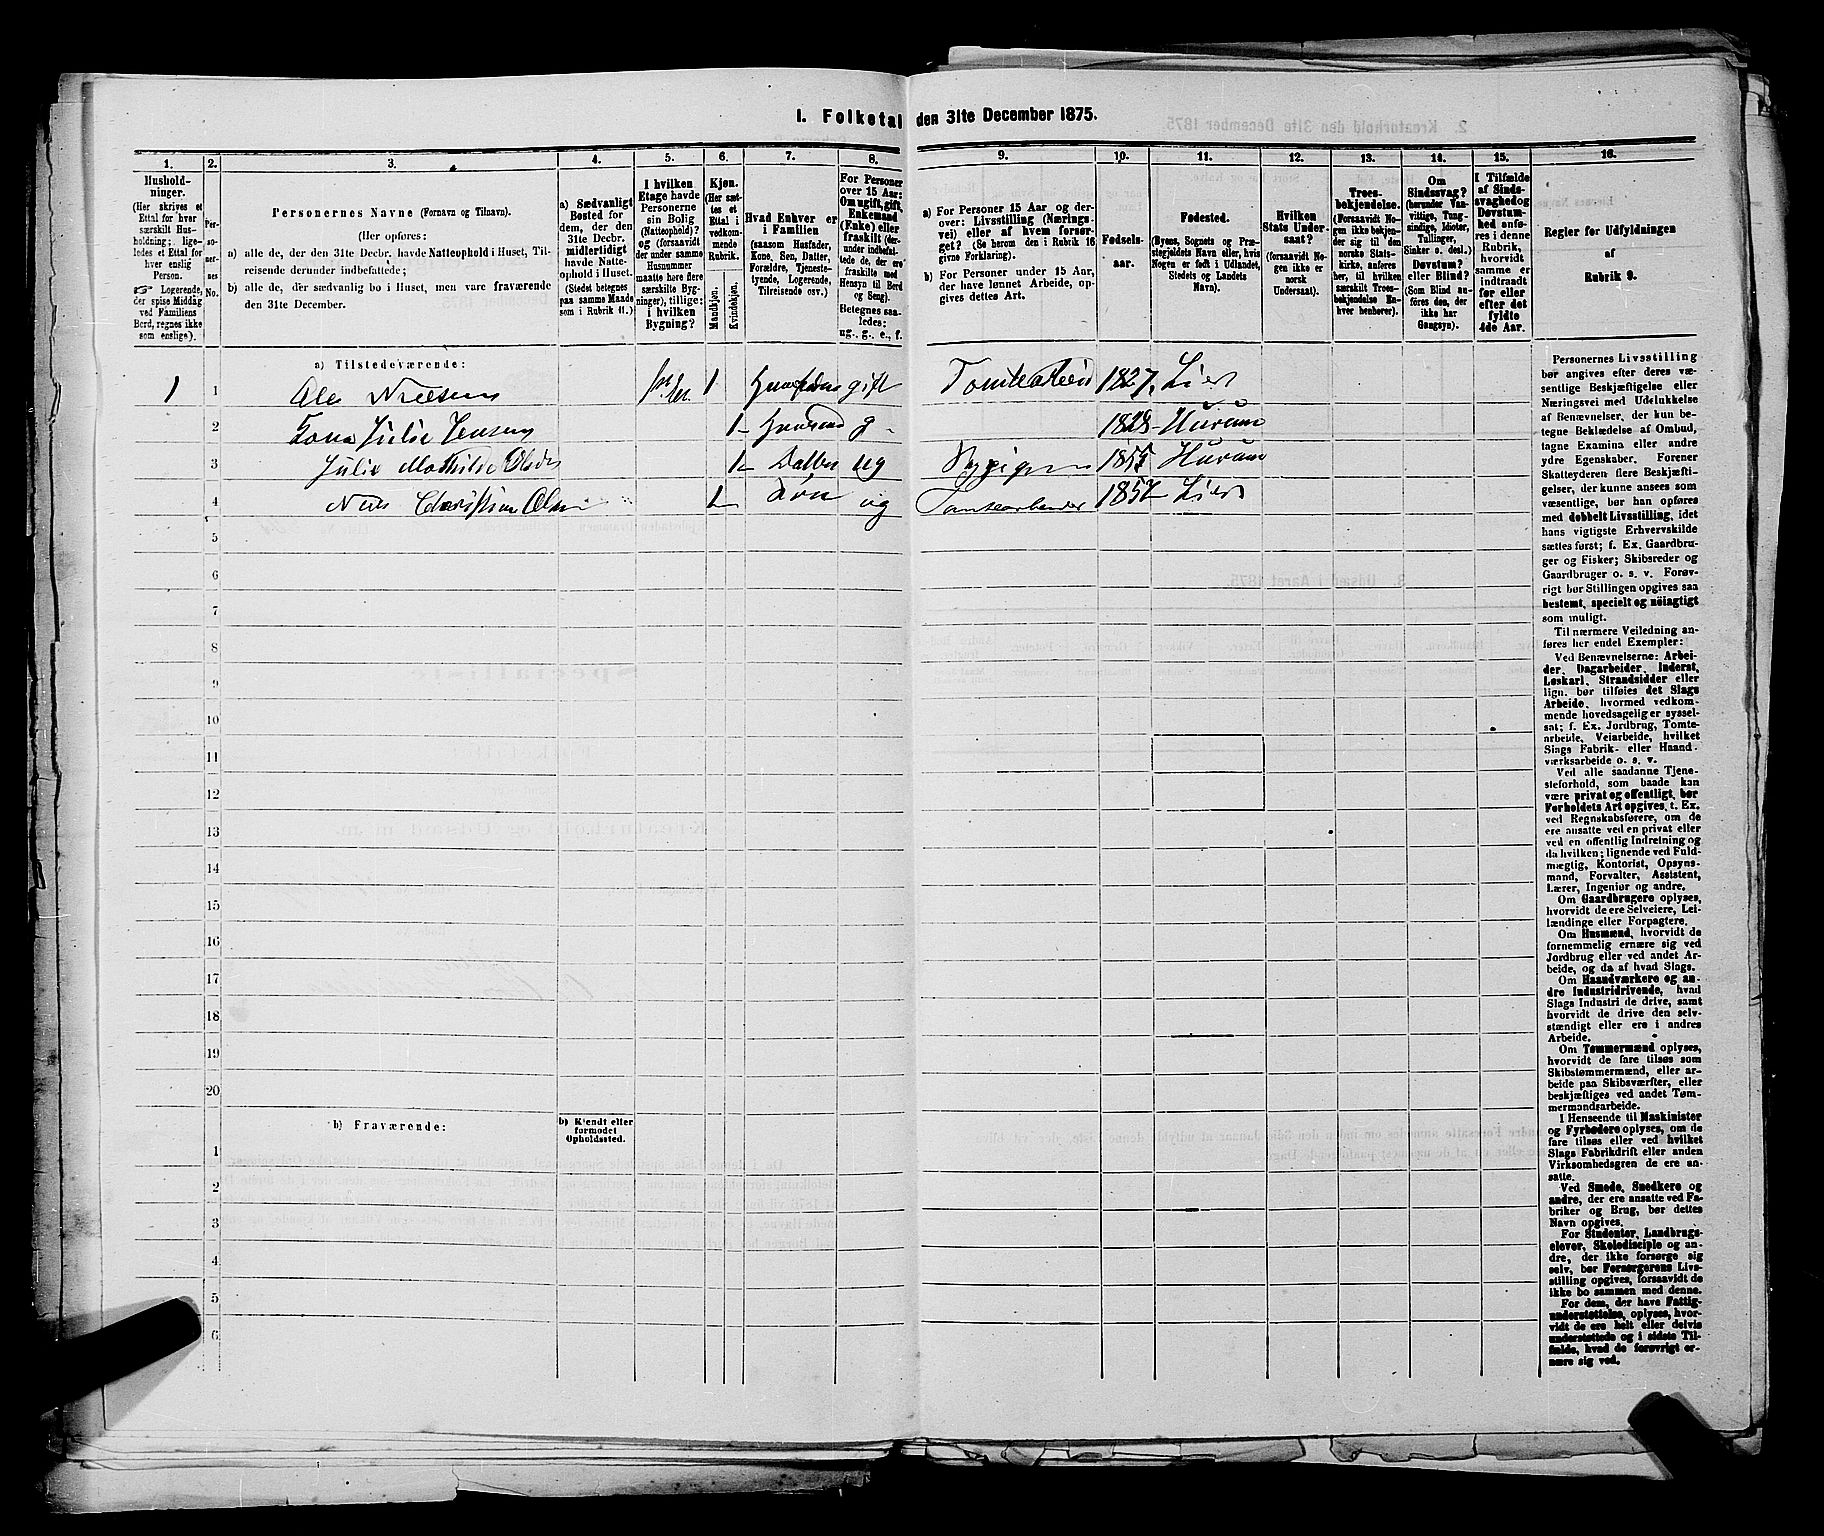 1. Folketal den 31te December 1875.
1. 2. 3. 4. 5. 6. 7. 8. 9. 10. 11. 12. 13. 14. 15. 16.
Hushold-
ninger.
(Her skrives et
Ettal for hver
særskilt Hus-
holdning; lige-
ledes et Ettal for
hver enslig
Person.
Logerende,
der spise Middag
ved Familiens
Bord, regnes ikke
som enslige).
Per-
so-
ner-
nes
No.
Personernes Navne (Fornavn og Tilnavn).
(Her opføres:
a) alle de, der den 31te Decbr. havde Natteophold i Huset, Til-
reisende derunder indbefattede;
b) alle de, der sædvanlig bo i Huset, men vare fraværende
den 31te December.
a) Sædvanligt
Bosted for
dem, der den
31te Decbr.
midlertidigt
havde Natte-
ophold i Huset.
(Stedet betegnes
paa samme Maade
som i Rubrik 11.)
I hvilken
Etage havde
Personerne
sin Bolig
(Natteophold)?
og (forsaavidt
der under samme
Husnummer
maatte høre flere
særskilte Byg-
ninger), tillige:
i hvilken
Bygning?
Kjøn.
(Her sæt-
tes et
Ettal i
vedkom-
mende
Rubrik.
Mandkjøn.
Kvindekjøn.
Hvad Enhver er
i Familien
(saasom Husfader,
Kone, Søn, Datter,
Forældre, Tjeneste-
tyende, Logerende,
Tilreisende osv.)
For Personer
over 15 Aar:
Om ugift, gift,
Enkemand
(Enke) eller
fraskilt (der-
under indbefat-
tede de, der ere
fraskilte med
Hensyn til Bord
og Seng).
Betegnes saa-
ledes:
ug., g., e., f.
a) For Personer 15 Aar og der-
over: Livsstilling (Nærings-
vei) eller af hvem forsør-
get? (Se herom den i Rubrik 16
givne Forklaring).
b) For Personer under 15 Aar,
der have lønnet Arbeide, op-
gives dettes Art.
Fødsels-
aar.
Fødested.
(Byens, Sognets og Præ-
stegjeldets Navn eller, hvis
Nogen er født i Udlandet,
Stedets og Landets
Navn).
Hvilken
Stats Under-
saat?
(forsaavidt No-
gen ikke er
norsk
Undersaat).
Troes-
bekjendelse.
(Forsaavidt No-
gen ikke bekjen-
der sig til den
norske Stats-
kirke, anføres
her, til hvilken
særskilt Troes-
bekjendelse En-
hver henhører).
Om
Sindssvag?
(herunder Van-
vittige, Tung-
sindige, Idioter,
Tullinger,
Sinker o. desl.)
Døvstum?
eller Blind?
(Som Blind an-
føres den, der
ikke har
Gangsyn).
I Tilfælde
af Sinds-
svaghed og
Døvstum-
hed anfø-
res i denne
Rubrik,
hvorvidt
samme er
indtraadt
før eller
efter det
fyldte
4de Aar.
Regler for Udfyldningen
af
Rubrik 9.
a) Tilstedeværende:
1 1 Ole Nielsen 1 gift 1827 Lier
2 Julie Jensen 1 g 1828 Hurum
3 Julie Mathilde Olsdr 1 Datter ug 1855 Hurum
4 Nils Christian Olsen 1 Søn ug Tomtearbeider 1857 Lier
5
6
7
8
9
10
11
12
13
14
15
16
17
18
19
20
b) Fraværende:
b) Kjendt eller
formodet
Opholdssted.
1
2
3
4
5
6
Personernes Livsstilling
bør angives efter deres væ-
sentlige Beskjæftigelse eller
Næringsvei med Udelukkelse
af Benævnelser, der kun be-
tegne Beklædelse af Ombud,
tagne Examina eller andre
ydre Egenskaber. Forener
Skatteyderen flere Beskjæfti-
gelser, der kunne ansees som
væsentlige, bør han opføres
med dobbelt Livsstilling, idet
hans vigtigste Erhvervskilde
sættes først; f. Ex. Gaardbru-
ger og Fisker; Skibsreder og
Gaardbruger o. s. v. Forøv-
rigt bør Stillingen opgives saa
bestemt, specielt og nøiagtigt
som muligt.
Til nærmere Veiledning an-
føres her endel Exempler:
Ved Benævnelserne: Arbei-
der, Dagarbeider, Inderst,
Løskarl, Strandsidder eller
lign. bør tilføies det Slags
Arbeide, hvormed vedkom-
mende hovedsagelig er syssel-
sat; f. Ex. Jordbrug, Tomte-
arbeide, Veiarbeide, hvilket
Slags Fabrik- eller Haand-
værksarbeide o. s. v.
Ved alle saadanne Tjene-
steforhold, som baade kan
være privat og offentligt, bør
Forholdets Art opgives, t. Ex.
ved Regnskabsførere, om de
ere ansatte ved en privat eller
ved en offentlig Indretning og
da hvilken; lignende ved Fuld-
mægtig, Kontorist, Opsyns-
mand, Forvalter, Assistent,
Lærer, Ingeniør og andre.
Om Gaardbrugere oplyses,
hvorvidt de ere Selveiere, Lei-
lændinge eller Forpagtere.
Om Husmænd, hvorvidt de
fornemmelig ernære sig ved
Jordbrug eller ved andet Ar-
beide, og da af hvad Slags.
Om Haandværkere og an-
dre Industridrivende, hvad
Slags Industri de drive, samt
hvorvidt de drive den selv-
stændigt eller ere i andres
Arbeide.
Om Tømmermænd oplyses,
hvorvidt de fare tilsøs som
Skibstømmermænd, eller ar-
beide paa Skibsværfter, eller
beskjæftiges ved andet Tøm-
mermandsarbeide.
I Henseende til Maskinister
og Fyrbødere oplyses, om de
fare tilsøs eller ved hvilket
Slags Fabrikdrift eller anden
Virksomhedsgren de ere an-
satte.
Ved Smede, Snedkere og
andre, der ere ansatte ved Fa-
briker og Brug, bør dettes
Navn opgives.
For Studenter, Landbrugs-
elever, Skoledisciple og an-
dre, der ikke forsørge sig
selv, bør Forsørgerens Livs-
stilling opgives, forsaavidt de
ikke bo sammen med denne.
For dem, der have Fattig-
understøttelse, oplyses, hvor-
vidt de ere helt eller delvis
understøttede og i sidste Til-
fælde, hvad de forøvrigt er-
nære sig ved.